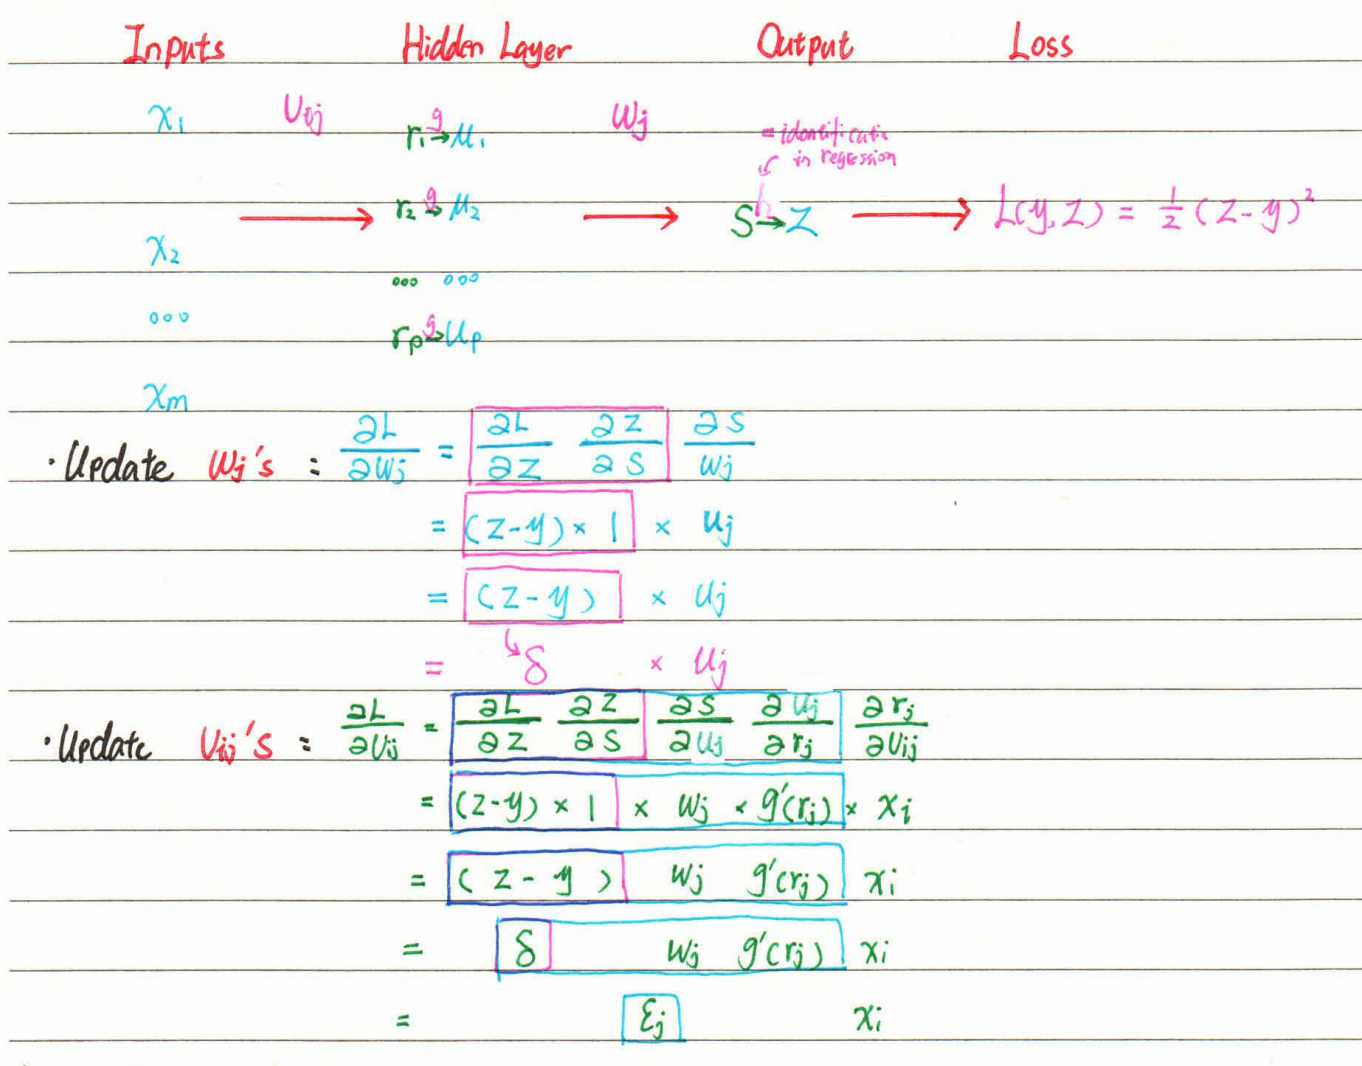 Inputs Hidden Layer Output Loss
x₁ Uij r₁ →g u₁ Wj
= identificatin
in regression
r₂ →g u₂ S →h Z L(y,z) = ½(z-y)²
x₂
ooo ooo
ooo
rp →g up
xm
· Update Wj's : ∂L/∂Wj = ∂L/∂z ∂z/∂s ∂s/Wj
= (z-y) × 1 × uj
= (z-y) × uj
= δ × uj
· Update Uij's : ∂L/∂Uij = ∂L/∂z ∂z/∂s ∂s/∂uj ∂uj/∂rj ∂rj/∂Uij
= (z-y) × 1 × Wj × g'(rj) × xi
= (z-y) Wj g'(rj) xi
= δ Wj g'(rj) xi
= εj xi